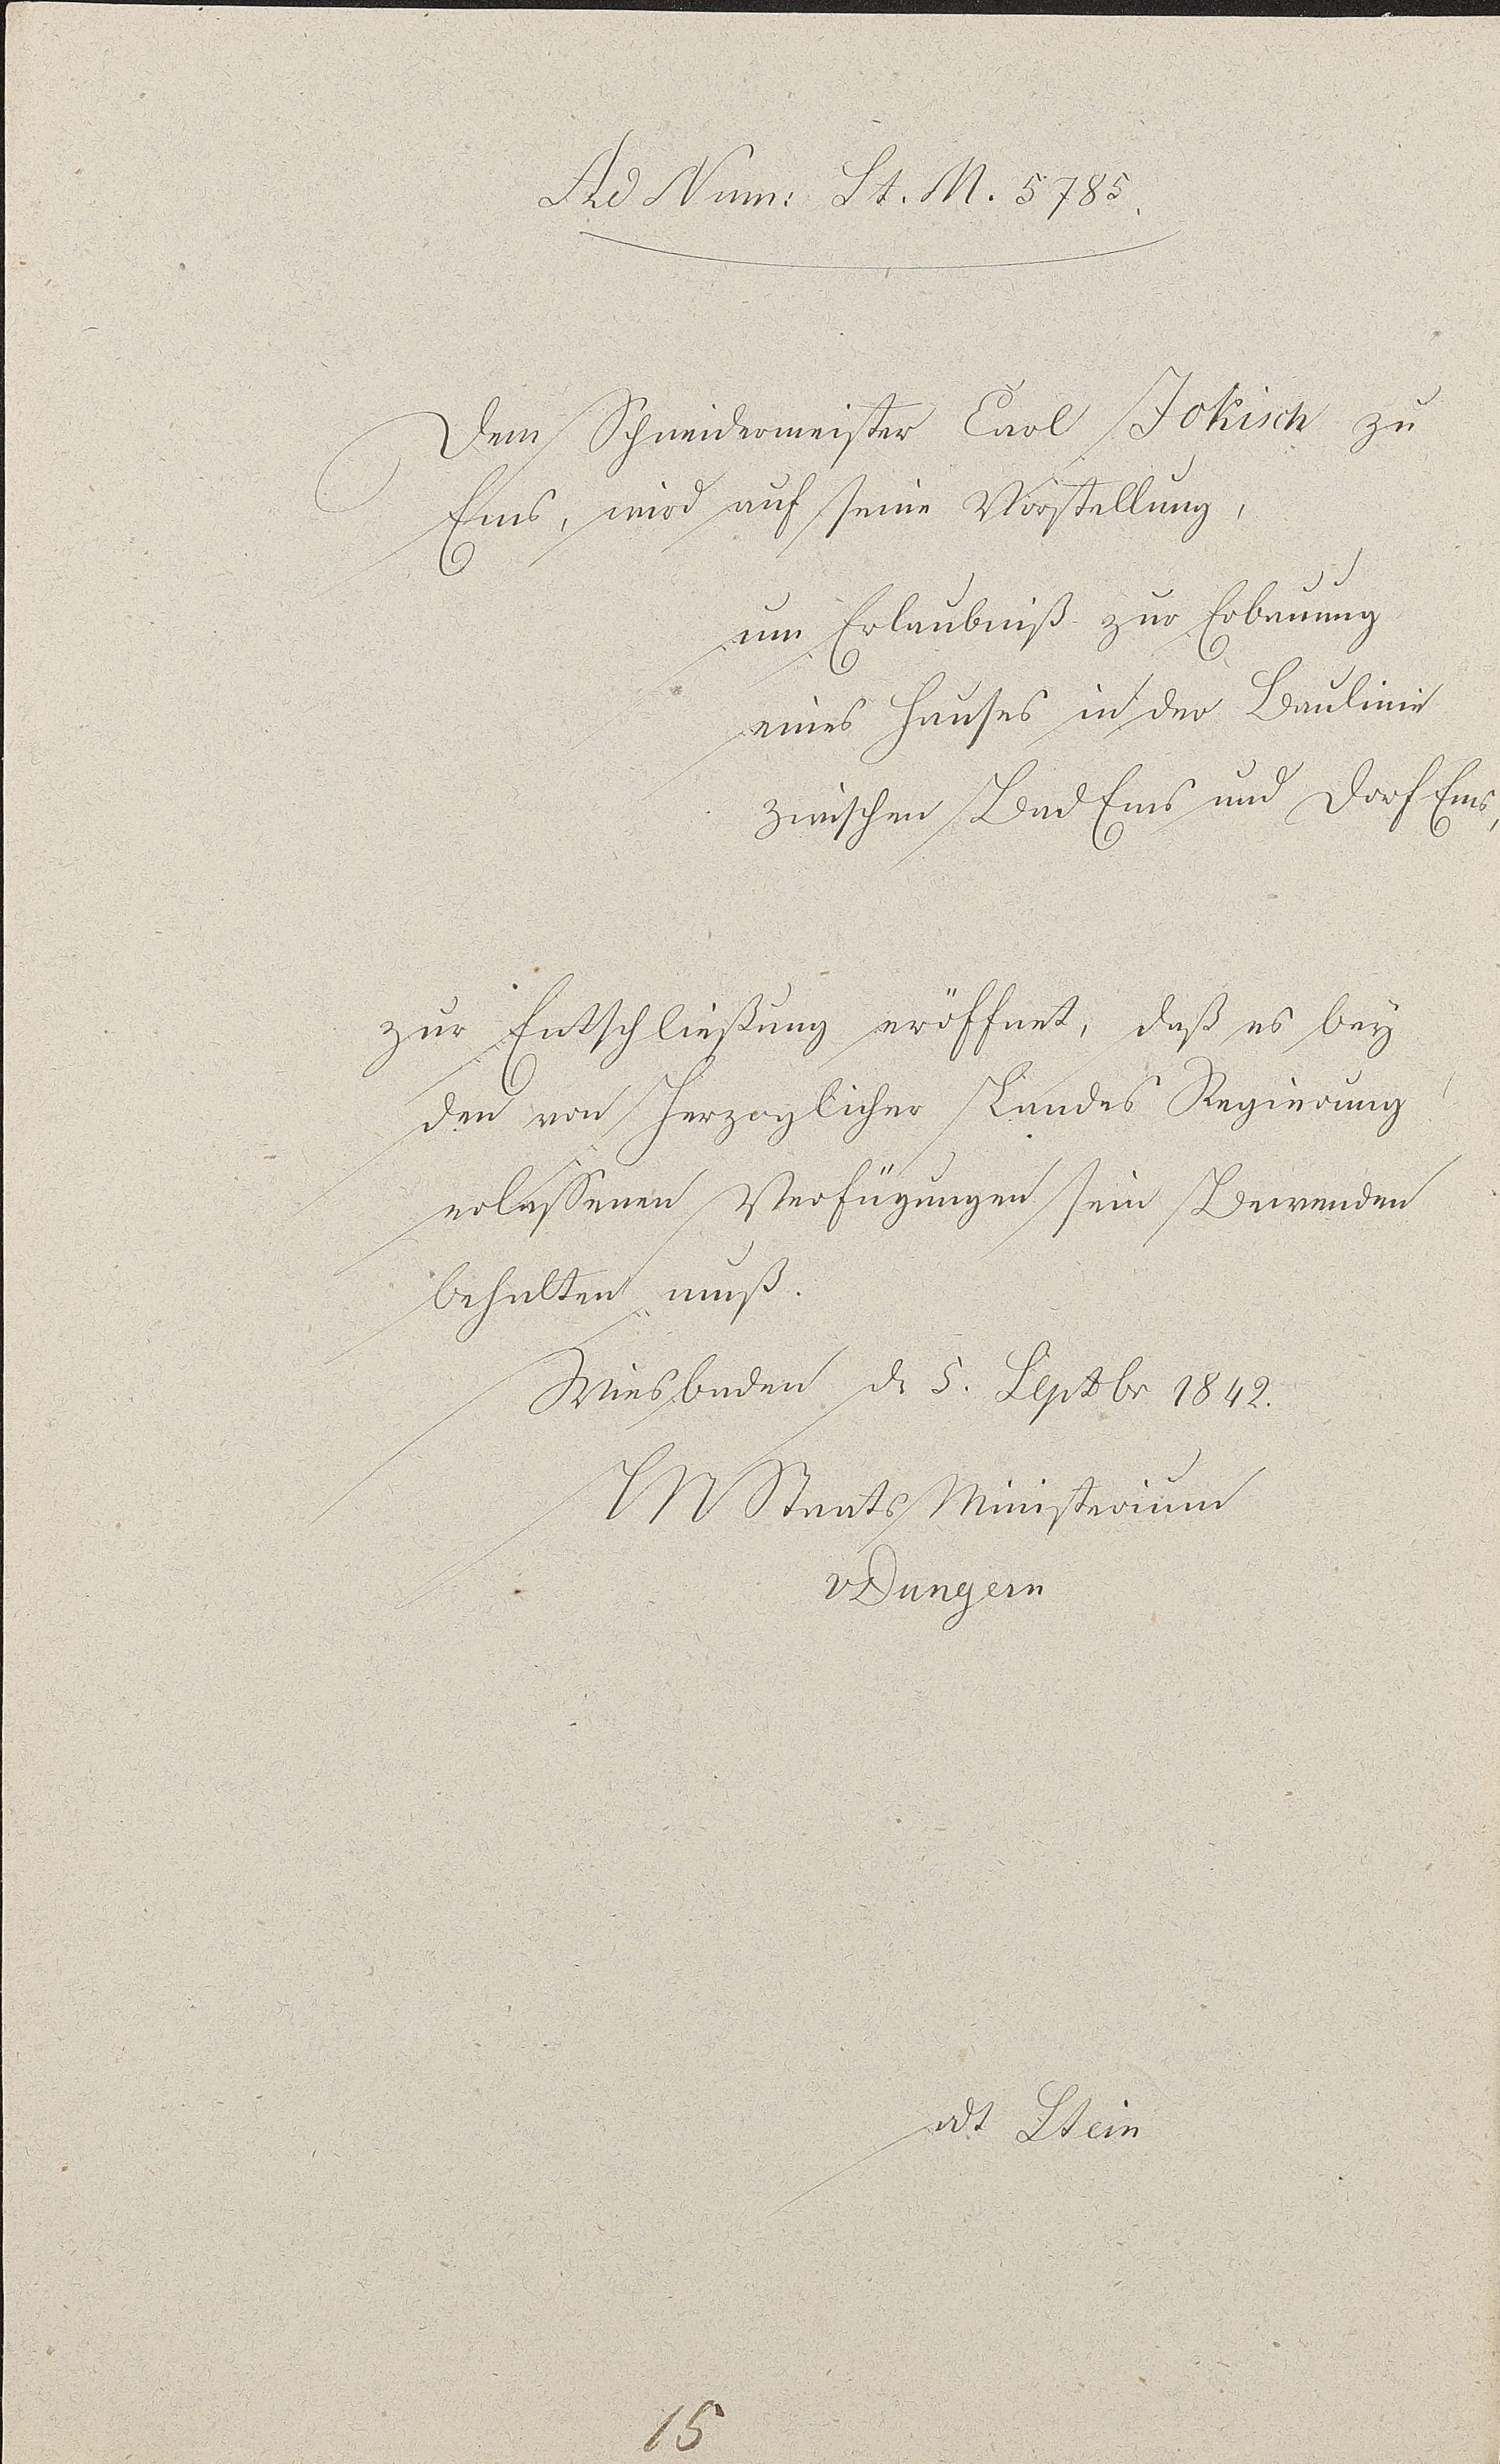 Ad Num: St. M. 5785.
Dem Schneidermeister Carl Jokisch zu
Ems, wird auf seine Vorstellung,
um Erlaubniß zur Erbauung
eines Hauses in der Baulinie
zwischen Bad Ems und Dorf Ems,
zur Entschließung eröffnet, daß es bey
den von Herzoglicher Landes Regierung
erlassenen Verfügungen sein Bewenden
behalten muß.
Wiesbaden d. 5. Septbr 1842.
HN Staats Ministerium
vDungern
vdt Stein
15